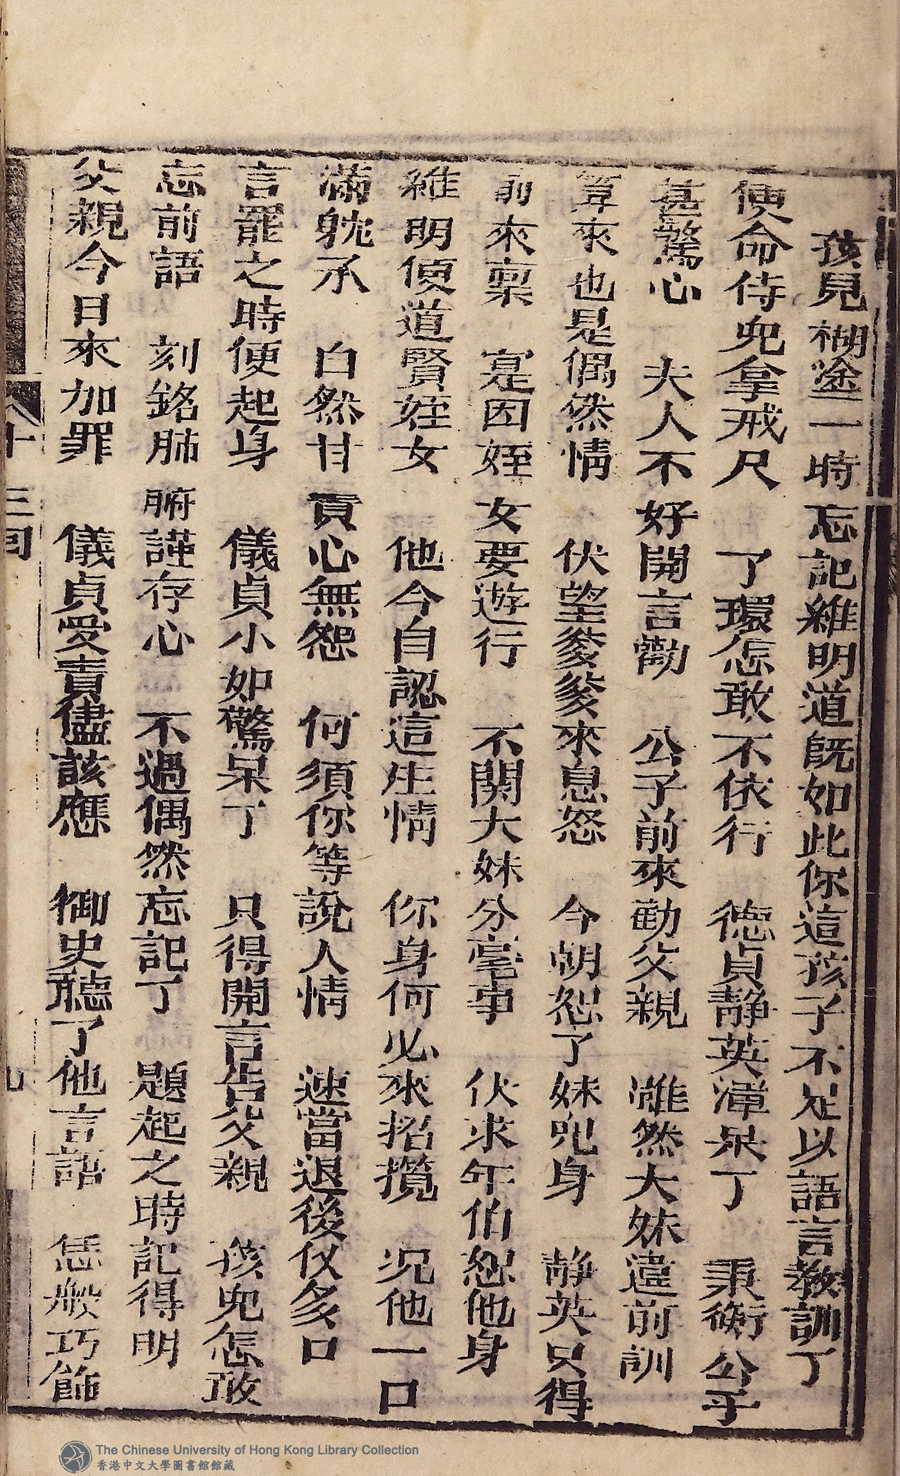 孩兒糊塗一時忘記維明道既如此你這孩子不足以語言教訓了
便命侍兒拿戒尺　了環怎敢不依行　德貞靜英漳呆了　秉衡公子
甚驚心　夫人不好開言勸　公子前來勸父親　雖然大妹違前訓
算來也是偶然情　伏望爹爹來息怒　今朝恕了妹兒身　靜英只得
前來稟　寔因姪女要遊行　不関大妹分毫事　伏求年伯恕他身
維明便道賢姪女　他今自認這庄情　你身何必來招攬　况他一口
滿躭承　自然甘責心無怨　何須你等說人情　速當退後仅多口
言罷之時便起身　儀貞小如驚呆了　只得開言告父親　孩兒怎敢
忘前語　刻銘肺腑謹存心　不過偶然忘記了　題起之時記得明
父親今日來加罪　儀貞受責儘該應　御史聽了他言語　恁般巧飾
十三回
九
The Chinese University of Hong Kong Library Collection
香港中文大學圖書館館藏